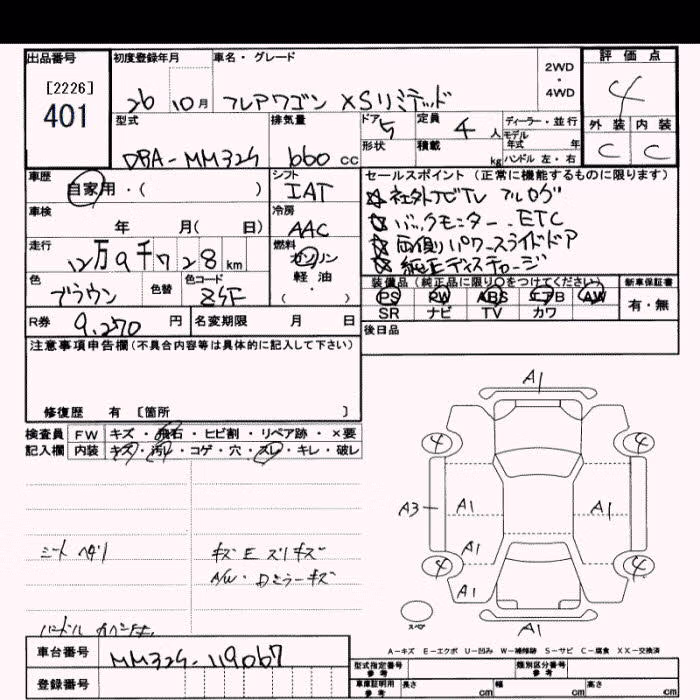 出品番号 初度登録年月 車名・グレード 2WD・4WD 評価点
[2226]
401
26 10月 フレアワゴン XSリミテッド 4
型式 排気量 ドア 5 定員 4人 ディーラー・並行 外装 内装
モデル年式 年
DBA-MM32S 660cc 形状 積載 kg ハンドル 左・右 C C
車歴 シフト セールスポイント(正常に機能するものに限ります)
自家用・( ) IAT
☆社外ナビTV フルセグ
車検 冷房
☆バックモニター、ETC
年 月( 日) AAC
☆両側パワースライドドア
走行 燃料
12万9千728km ガソリン・軽油・
☆純正ディスチャージ
色 色替 色コード
装備品(純正品に限り○をつけてください) 新車保証書
ブラウン
PS PW ABS エアB AW 有・無
SR ナビ TV カワ
R券 9,270円 名変期限 月 日
後日品
注意事項申告欄(不具合内容等は具体的に記入して下さい)
修復歴 有 [箇所 ]
検査員 FW キズ・飛石・ヒビ割・リペア跡・×要
記入欄 内装 キズ・汚レ・コゲ・穴・スレ・キレ・破レ
A1
4 4
A3 A1 A1
A1
4 4
A1
スペア
A1
シート ヘタリ キズ E スリキズ
AW・ドミラーキズ
A-キズ E-エクボ U-凹み W-補修跡 S-サビ C-腐食 XX-交換済
車台番号 MM32S-119067
型式指定番号 参考 類別区分番号 参考
登録番号
車庫証明用 参考 長さ cm 幅 cm 高さ cm